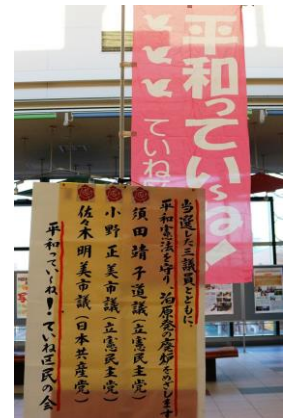 平和っていいね!
ていね区
当選した三議員とともに、
平和憲法を守り、泊原発の廃炉をめざします
須田靖子道議(立憲民主党)
小野正美市議(立憲民主党)
佐々木明美市議(日本共産党)
平和って、いいね!・ていね区民の会